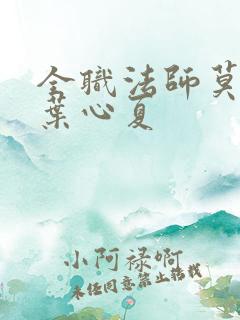 全職法師莫
葉心夏
小阿祿啊
未經同意禁止轉載